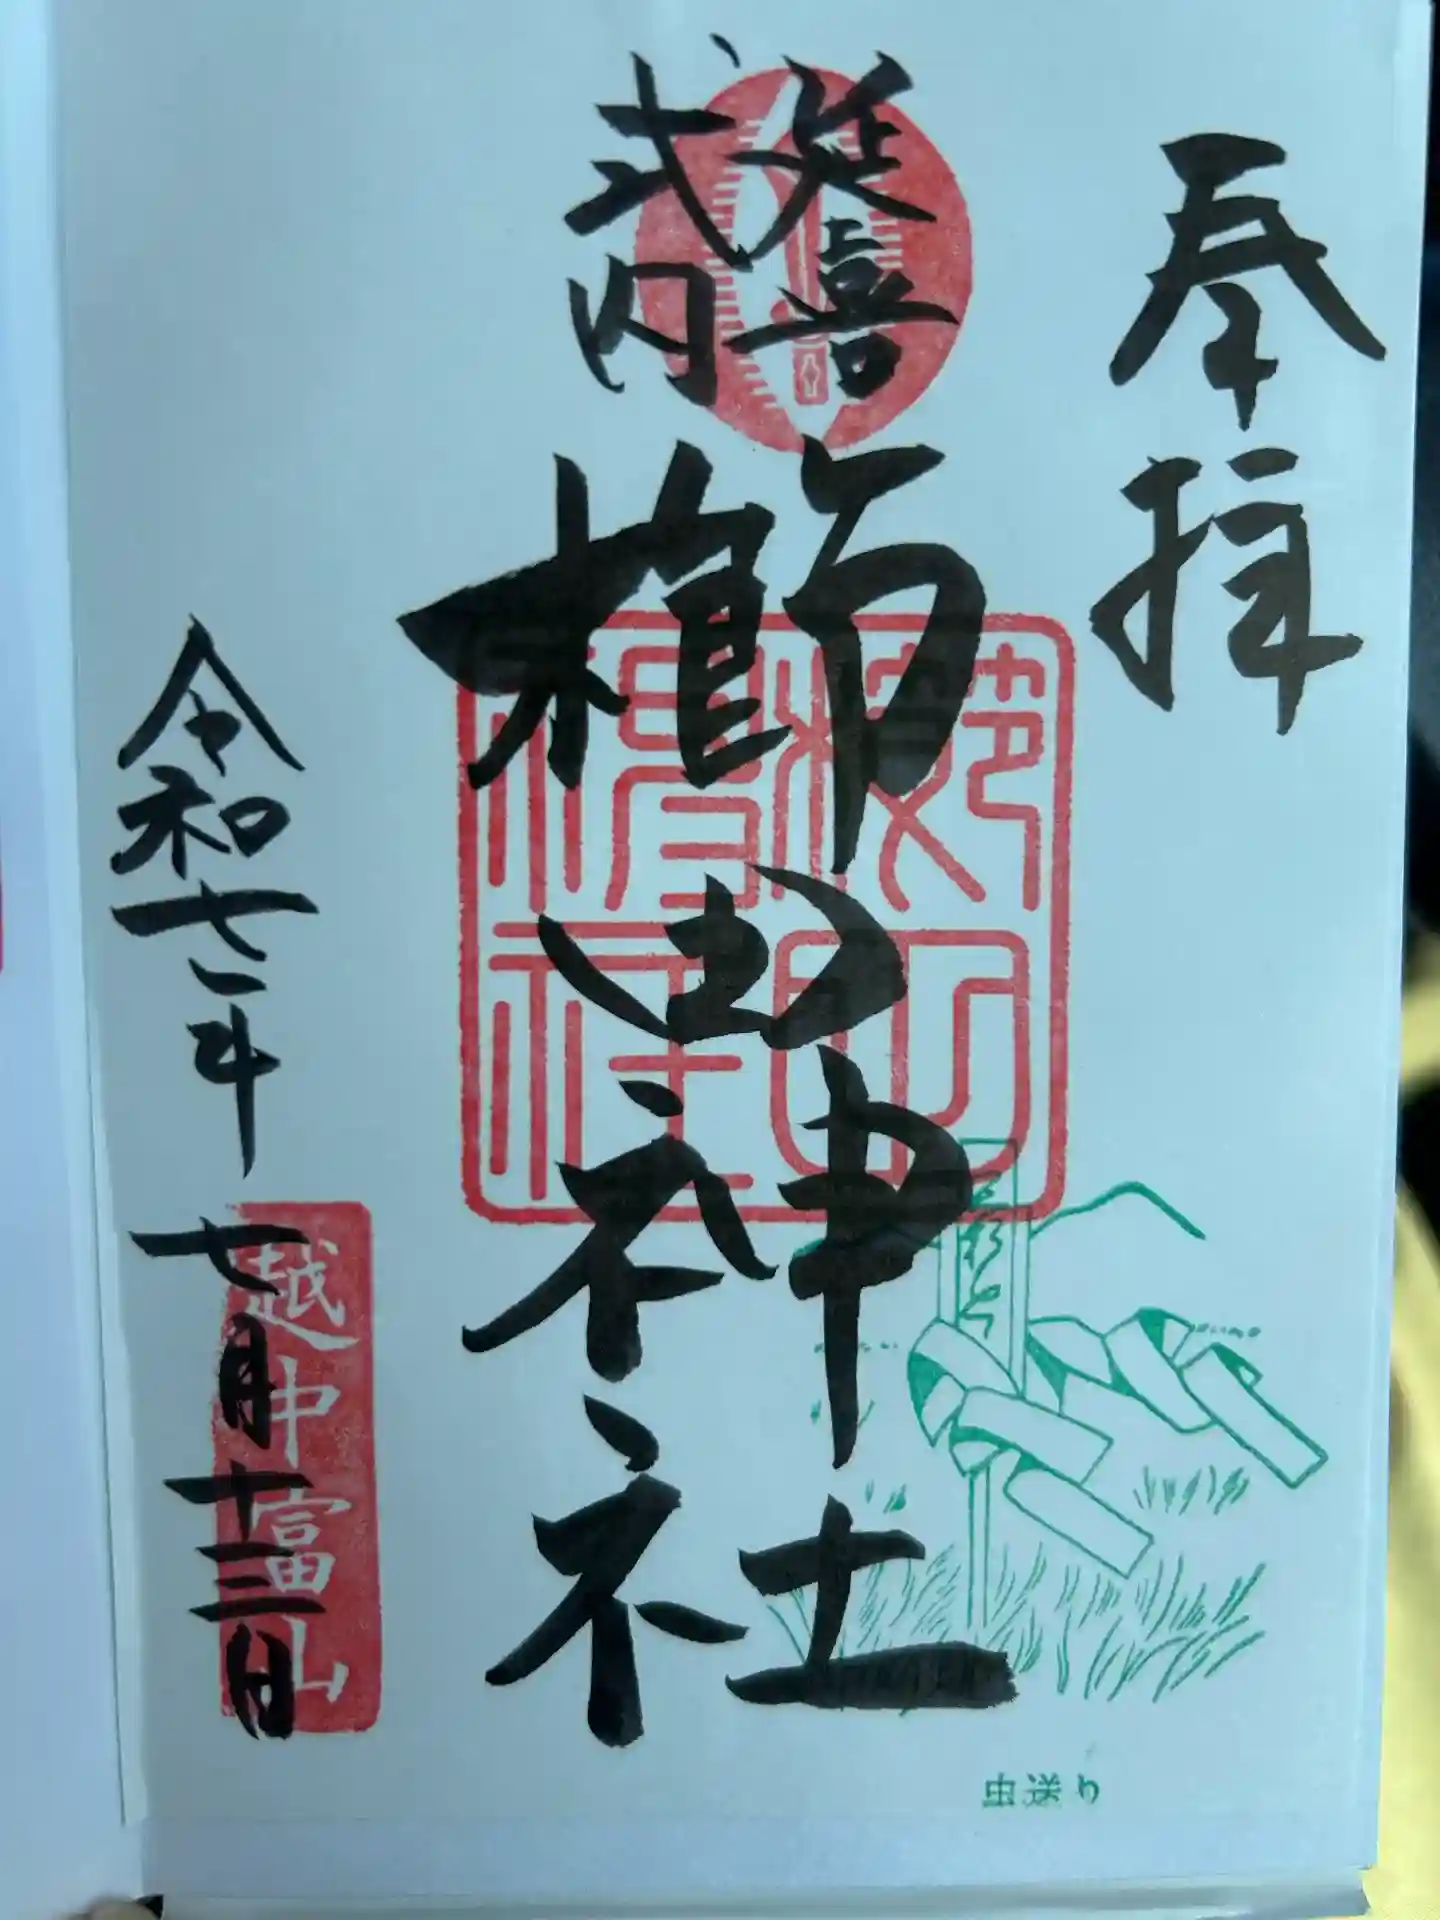 奉拝
延喜
式内
櫛田神社
令和七年
七月十三日
越中富山
虫送り